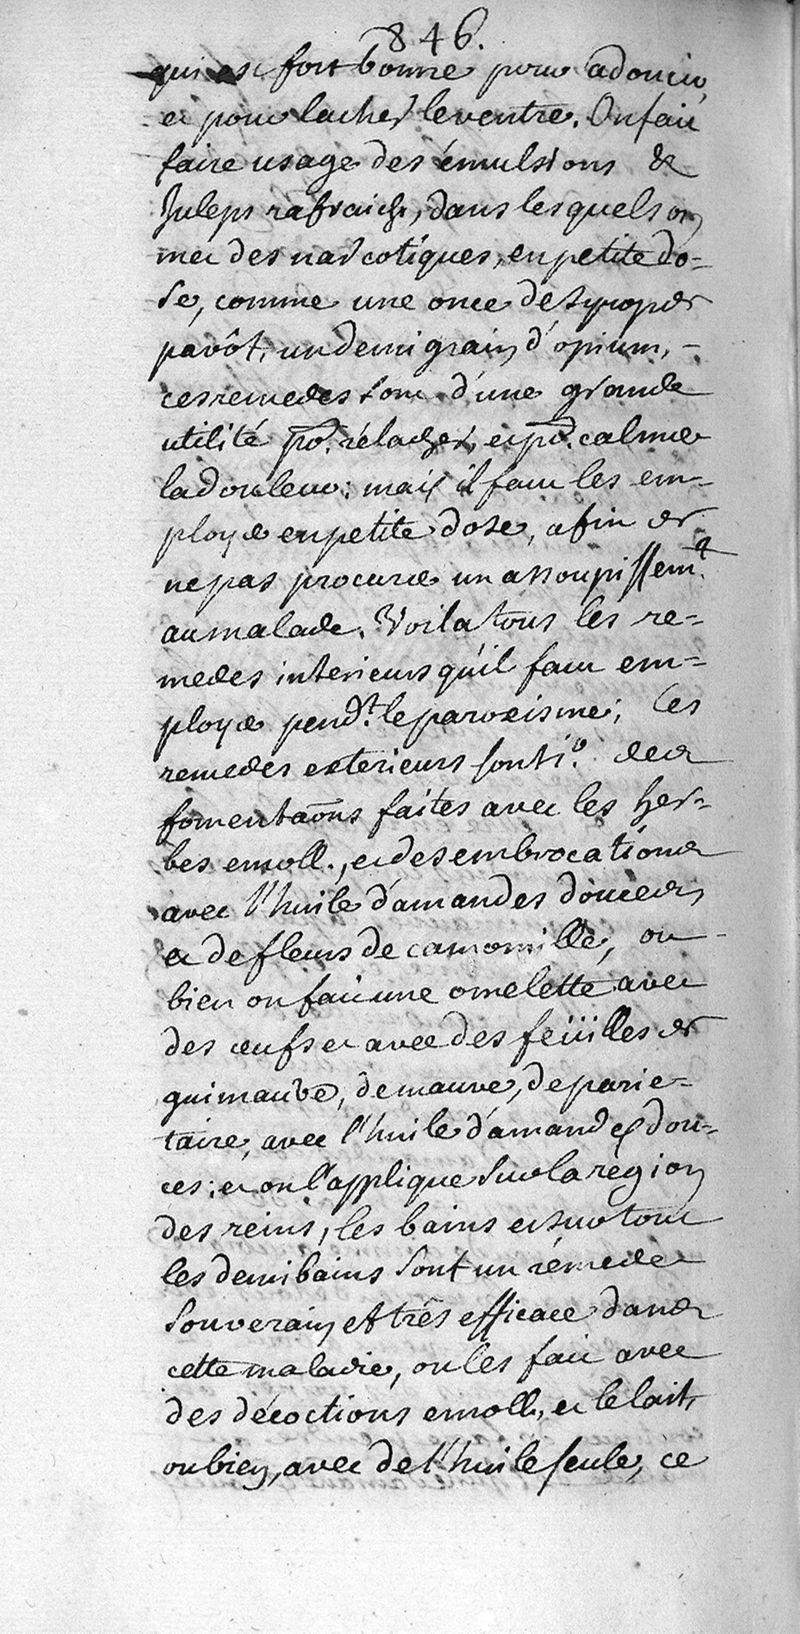 846.
qui est fort bonne pour adoucir,
et pour lacher le ventre. On fait
faire usage des émulsions &
Juleps rafraich, dans lesquels on
met des narcotiques, en petite do=
se, comme une once de syrop de
pavôt, un demi grain d'opium, -
ces remedes sont d'une grande
utilité po.r rélacher, et po.r calmer
la douleur: mais il faut les em=
ployer en petite dose, afin de
ne pas procurer un assoupissem.t
au malade. Voila tous les re=
medes interieurs qu'il faut em=
ployer pend.t le paroxisme; les
remedes exterieurs sont 1.o des
fomentaons faites avec les her=
bes emoll., et des embrocations
avec l'huile d'amandes douces,
et de fleurs de camomille, ou
bien on fait une omelette avec
des œufs et avec des feüilles de
guimauve, de mauve, de parie=
taire, avec l'huile d'amandes dou=
ces; et on l'applique sur la région
des reins, les bains et sur tout
les demi bains sont un rémede
souverain et très efficace dans
cette maladie, on les fait avec
des décoctions emoll., et le lait,
ou bien, avec de l'huile seule, ce